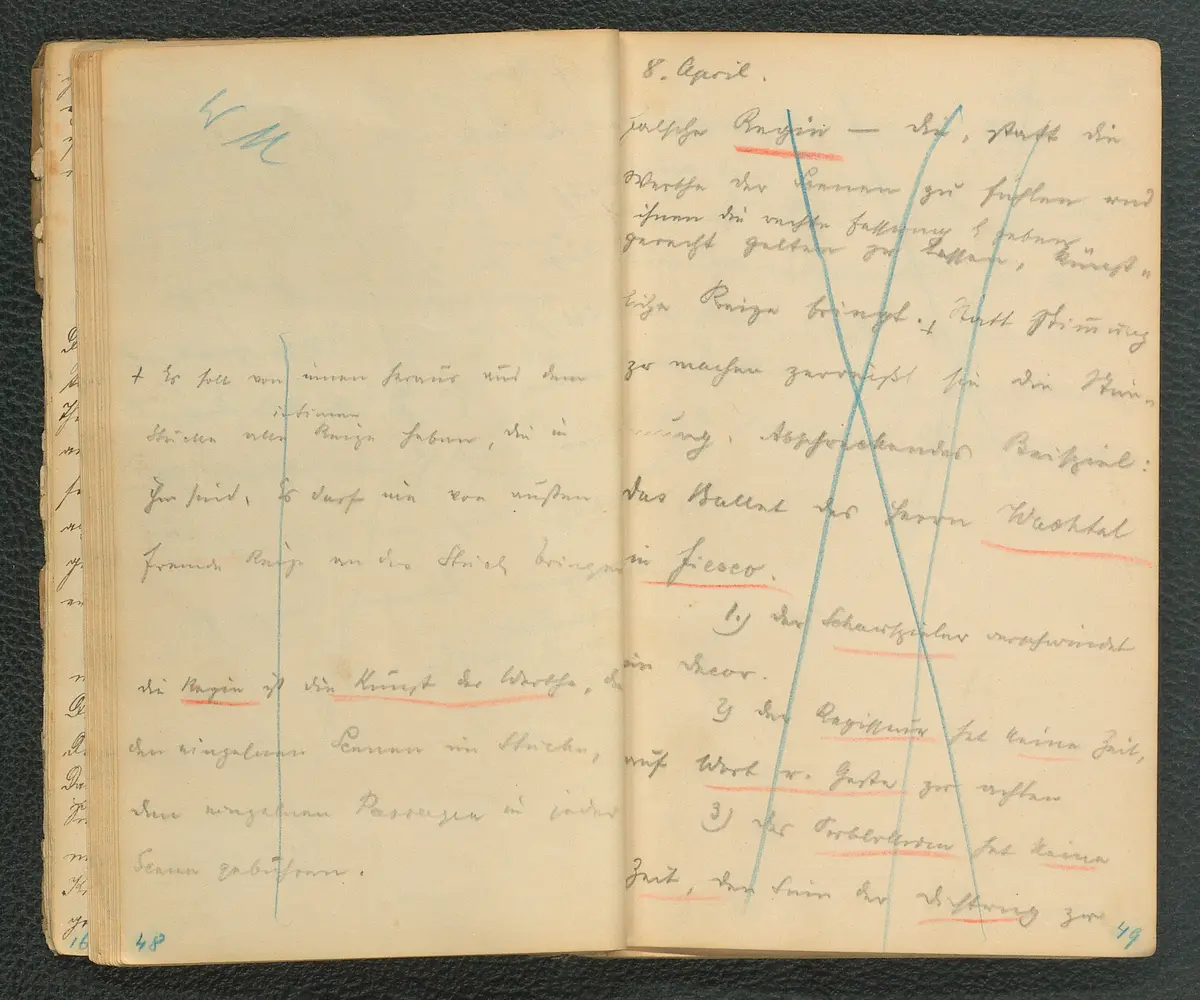 W M
+ Es soll von innen heraus aus dem
intimen
Stücke alle Reize haben, die in
ihm sind. Es darf nie von außen
fremde Reize an das Stück bringen
die Regie ist die Kunst der Werthe, die
den einzelnen Scenen im Stücke,
den einzelnen Passagen in jeder
Scene gebühren.
48
16
8. April.
falsche Regie — die, statt die
Werthe der Scenen zu fühlen und
ihnen die rechte Fassung z geben
gerecht gelten zu lassen, künst-
liche Reize bringt. + Statt Stimmung
zu machen zerreißt sie die Stim-
mung. Abschreckendes Beispiel:
das Ballet des Herrn Wachtal
in Fiesco.
1.) der Schauspieler verschwindet
im Decor.
2) der Regisseur hat keine Zeit,
auf Wort u. Geste zu achten
3) das hat keine
Zeit, den Sinn der Dichtung zu
49